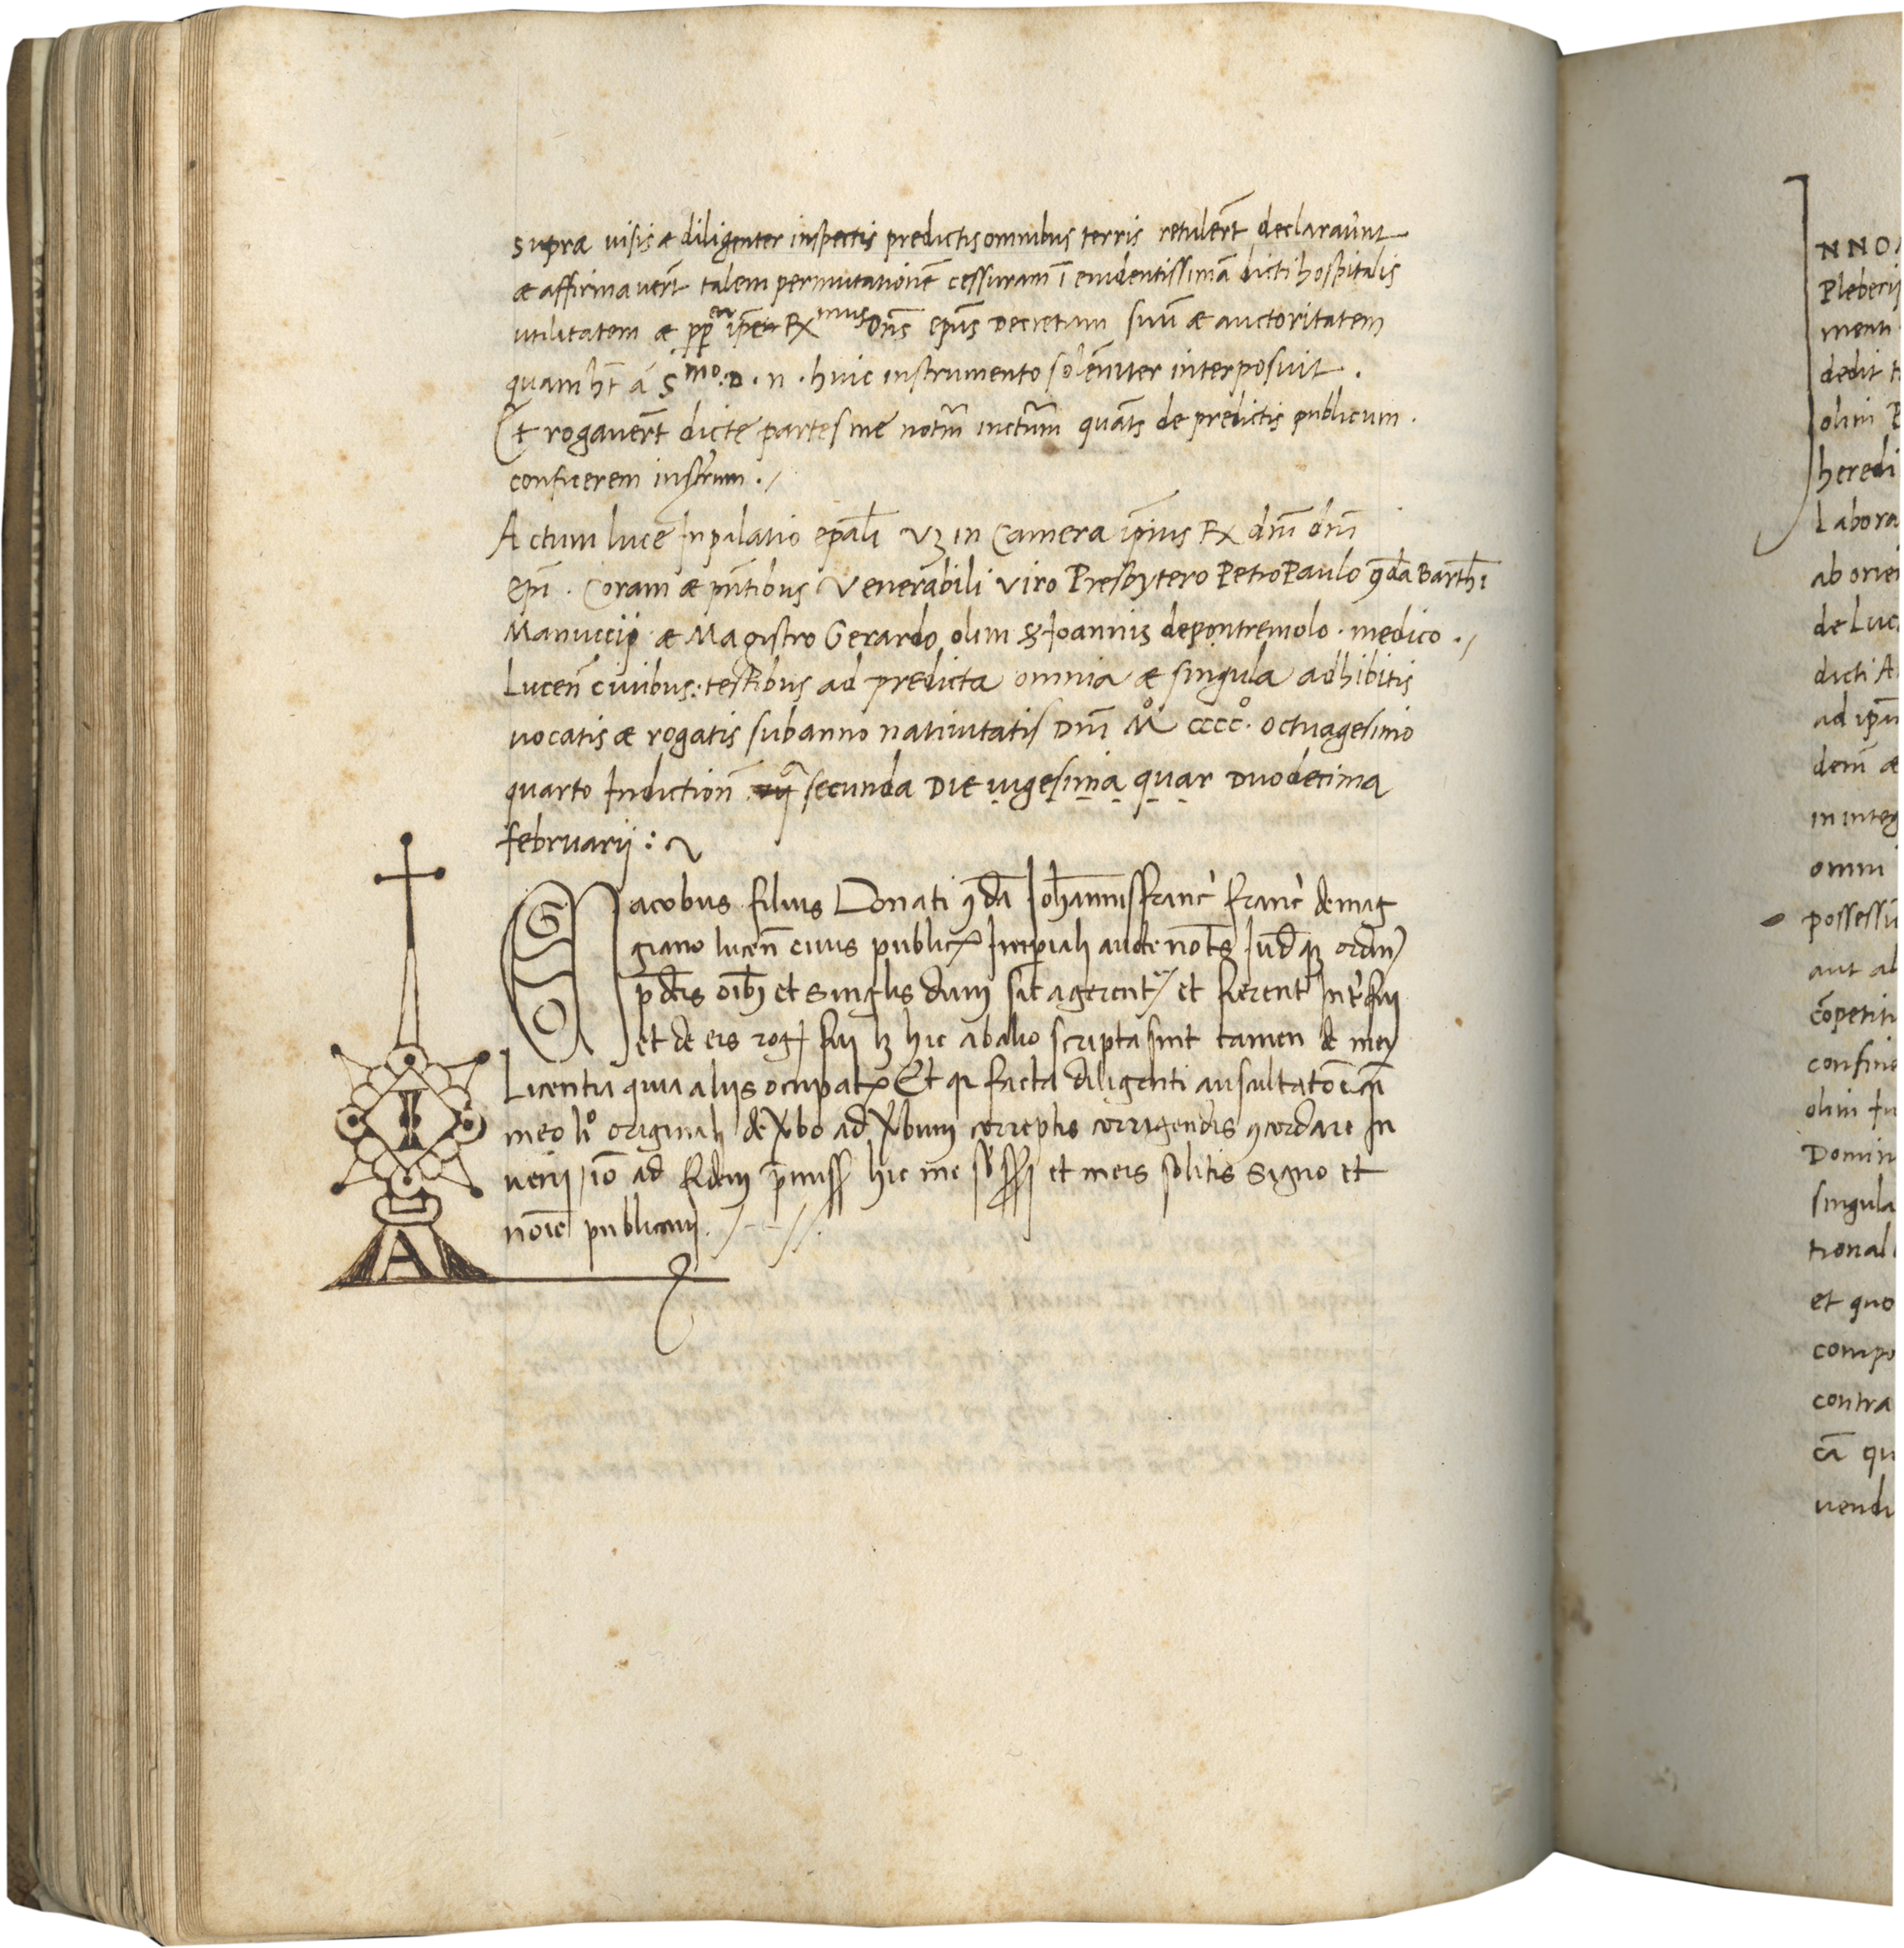 supra visis & diligenter inspectis predictis omnibus terris retulert̄ declaraūnt
& affirmavert̄ talem permutationē cessuram ī evidentissimā dicti hospitalis
utilitatem & ip̄e Rx mus Dn̄s ep̄us Decretum suū & auctoritatem
quam ht̄ ā Smo. D. n. huic instrumento solēniter interposuit.
Et rogavert̄ dicte partes me notm̄ quāts de predictis publicum.
conficerem instrum. /
Actum luce In palatio ep̄ali vz in Camera ip̄ius Rx dn̄i dn̄i
Ep̄i. Coram & pn̄tibus Venerabili viro Presbytero Petro Paulo qda Barth̄i
Manuccij & Magistro Gerardo olim Joannis de pontremolo. medico. /
Lucen̄ civibus: testibus ad predicta omnia & singula adhibitis
vocatis & rogatis sub anno nativitatis Dn̄i Mo cccco. octuagesimo
quarto Indiction̄ secunda Die vigesima quar Duodecima
februarij :
EGO Jacobus filius Donati qda Johannisfranc̄ franc̄ de mag
giano lucen̄ civis public9 Imperiali aucte not̄s Iudqz ordin
p̄dc̄is oīb3 et singlis dum sic agerent et fierent Int̄fui
et de eis rog fui lz hic ab alio scripta sint tamen de mei
Licentia quia aliis ocupat9 Et qr facta diligenti auscultatōe cū
meo lo originali de vbo ad vbum correptis corrigendis 9cordare In
veni / iō ad fidem p̄miss hic me sb̄ss̄i et meis solitis signo et
nōie publicavi.
A
NNO
Pleberij
menti
dedit
olim
heredi
Labora
ab orien
de Luc
dicti A
ad ipū
dem̄ &
in integ
omni
possessū
aut al
cōpetit
confine
olim
Domin
singula
tional
et quo
compo
contra
cā qu
vendi